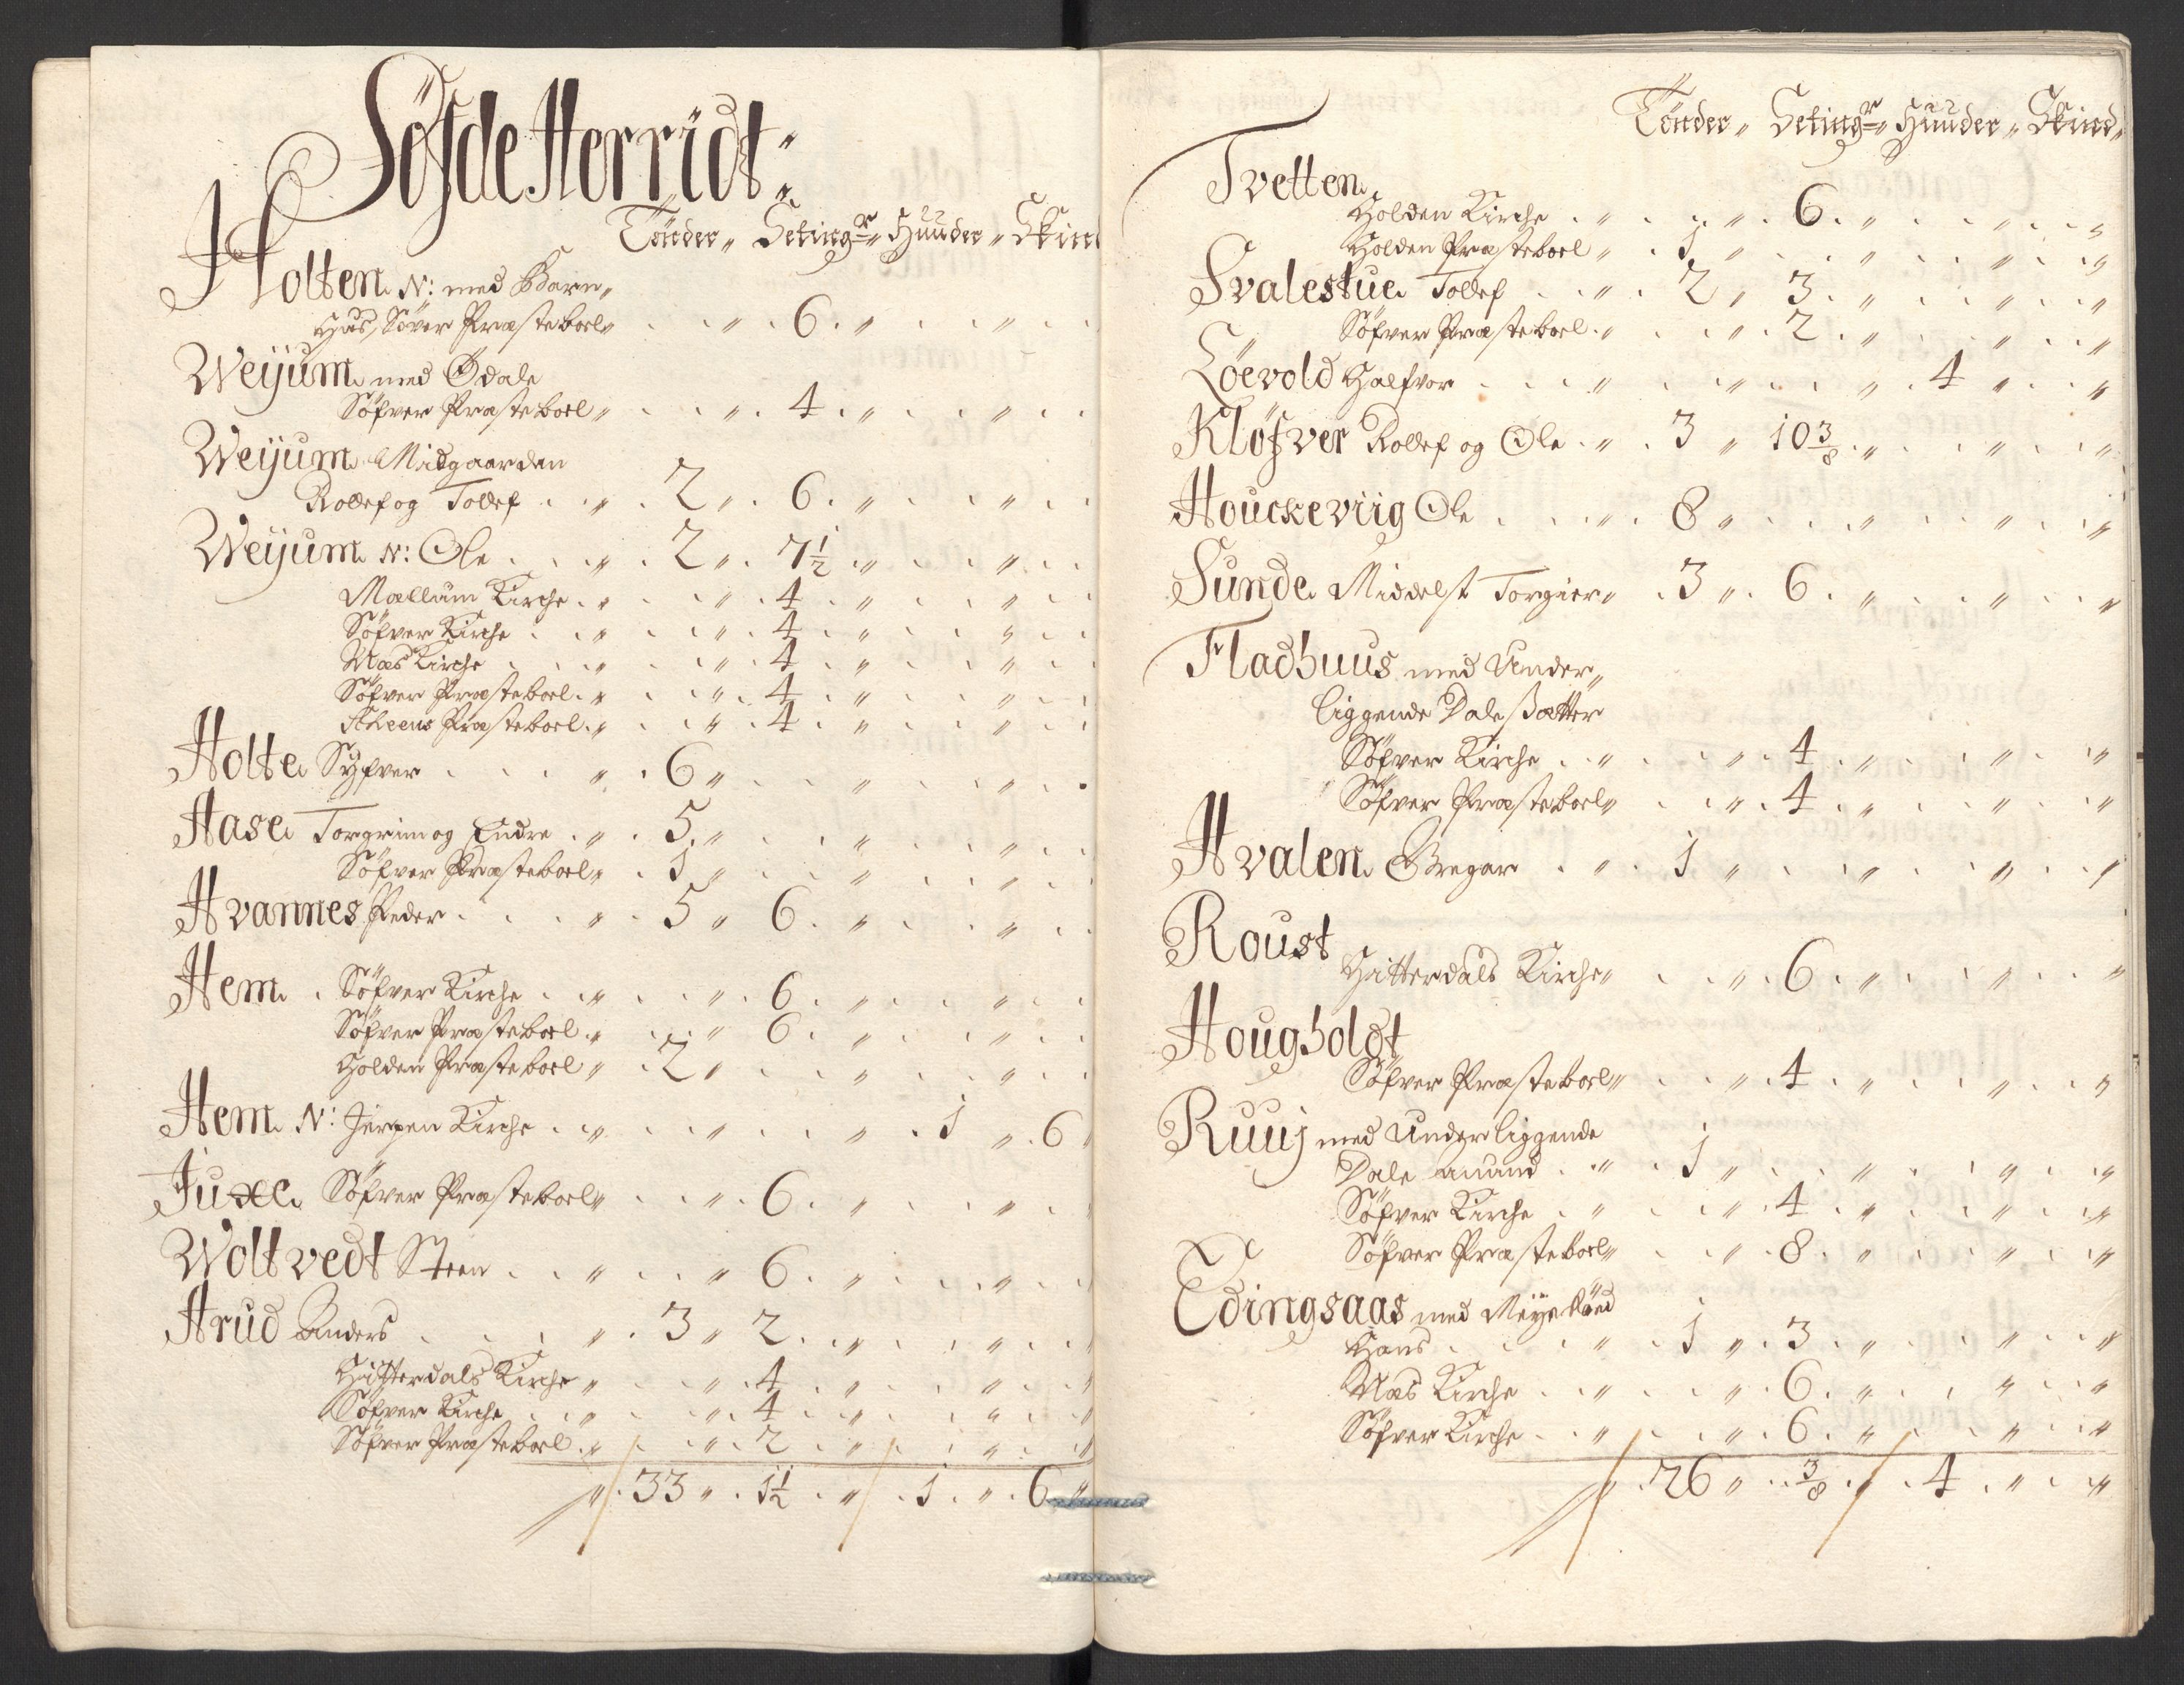 Söfde Herridt:
Tönder „ Seting^r „ Huuder „ Skind
Holten N: med Barn„
Huus, Söver Præsteboel „ . . „ . 6 . „ . . „ . .
Weyum med Ødale
Söfver Præsteboel „ . . „ . 4 . „ . . „ . .
Weyum Midgaarden
Rollef og Tollef . . „ . 2 „ . 6 . „ . . „ . .
Weyum N: Ole . . . „ . 2 „ . 7 1/2 . „ . . „ . .
Mællum Kirche . „ . . „ . 4 . „ . . „ . .
Söfver Kirche . . „ . . „ . 4 . „ . . „ . .
Næs Kirche . . . „ . . „ . 4 . „ . . „ . .
Söfver Præsteboel . „ . . „ . 4 . „ . . „ . .
Scheens Præsteboel . „ . . „ . 4 . „ . . „ . .
Holte Syfver . . . „ . 6 „ . . „ . . „ . .
Hase Torgrim og Endre . „ . 5 „ . . „ . . „ . .
Söfver Præsteboel „ . 1 „ . . „ . . „ . .
Hvannes Peder . . . „ . 5 „ 6 . „ . . „ . .
Hem . Söfver Kirche . . „ . . „ . 6 . „ . . „ . .
Söfver Præsteboel . „ . . „ 6 . „ . . „ . .
Holden Præsteboel „ . 2 „ . . „ . . „ . .
Hem N: Jerpen Kirche . . „ . . „ . . „ . 1 „ . 6
Juxe Söfver Præsteboel „ . . „ . 6 . „ . . „ .
Woltvedt Steen . . „ . . „ 6 . „ . . „ . .
Arud Anders . . . „ . 3 „ 2 . „ . . „ . .
Hitterdals Kirche „ . . „ . 4 . „ . . „ . .
Söfver Kirche . . „ . . „ . 4 . „ . . „ . .
Söfver Præsteboel . „ . . „ . 2 . „ . . „ . .
„ . 33 „ . 1 1/2 . „ . 1 . „ . 6 „
Tönder „ Seting^r „ Huuder „ Skind „
Tvetten
Holden Kirche . „ . . „ . 6 . „ . . „ . . „
Holden Præsteboel „ . 1 „ . . „ . . „ . . „
Svalestue Tollef . . „ . 2 „ 3 . „ . . „ . . „
Söfver Præsteboel . „ . . „ . 2 . „ . . „ . . „
Löevold Halfvor . . . „ . . „ . . „ . 4 „ . . „
Klöfver Rollef og Ole . „ . 3 „ 10 3/8 . „ . . „ . . „
Houckeviig Ole . . . „ . 8 „ . . „ . . „ . . „
Sunde Middelst Torgier „ . 3 „ . 6 . „ . . „ . . „
Fladhuus med Under„
liggende Dalessætter
Söfver Kirche . . „ . . „ . 4 . „ . . „ . . „
Söfver Præsteboel „ . . „ . 4 . „ . . „ . . „
Hvalen Gregar . „ . 1 „ . . „ . . „ . . „
Roust
Hitterdals Kirche „ . . „ . 6 . „ . . „ . . „
Hougholdt
Söfver Præsteboel „ . . „ . 4 . „ . . „ . . „
Ruuj med Underliggende
Dale Anund . . „ . 1 „ . . „ . . „ . . „
Söfver Kirche . „ . . „ . 4 . „ . . „ . . „
Söfver Præsteboel „ . . „ . 8 . „ . . „ . . „
Edingsaas med
Hans . . . „ . 1 „ . 3 . „ . . „ . . „
Næs Kirche . . „ . . „ . 6 . „ . . „ . . „
Söfver Kirche . . „ . . „ . 6 . „ . . „ . . „
„ . 26 „ . . 3/8 . „ . 4 . „ . . „